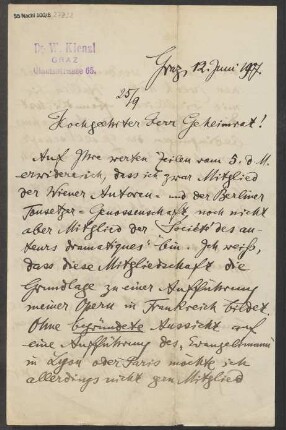 55 Nachl 100/B
Dr. W. Kienzl
GRAZ
65.
Graz, 12. Juni 1907.
25/9
Hochgeehrter Herr Geheimrat!
Auf Ihre werten Zeilen vom 5. d. M.
erwidere ich, dass ich zwar Mitglied
der Wiener Autoren- und der Berliner
Tonsetzer-Genossenschaft, noch nicht
aber Mitglied der „Société des au-
teurs dramatiques" bin. Ich weiß,
dass diese Mitgliedschaft die
Grundlage zu einer Aufführung
meiner Opern in Frankreich bildet.
Ohne begründete Aussicht auf
eine Aufführung des „Evangelimann"
in Lyon oder Paris möchte ich
allerdings nicht gern Mitglied